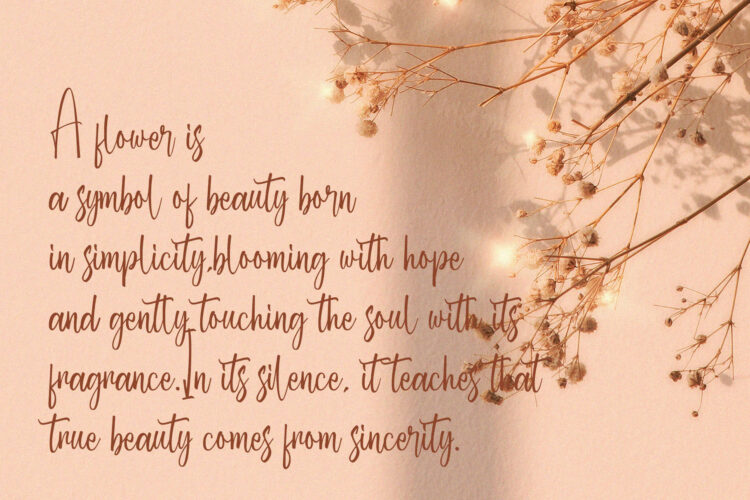 A flower is
a symbol of beauty born
in simplicity,blooming with hope
and gently touching the soul with its
fragrance.In its silence, it teaches that
true beauty comes from sincerity.